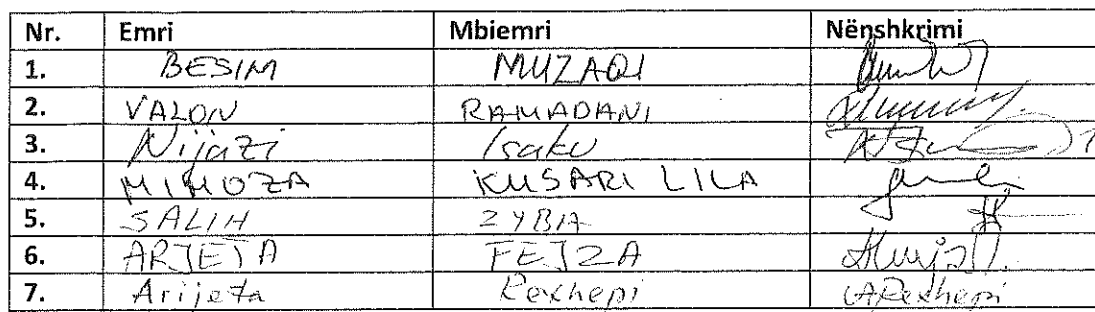 Nr. Emri Mbiemri Nënshkrimi
1. BESIM MUZAQI
2. VALON RAMADANI
3. Nijazi Isaku
4. MIMOZA KUSARI LILA
5. SALIH ZYBA
6. ARJETA FEJZA
7. Arijeta Rexhepi ARexhepi